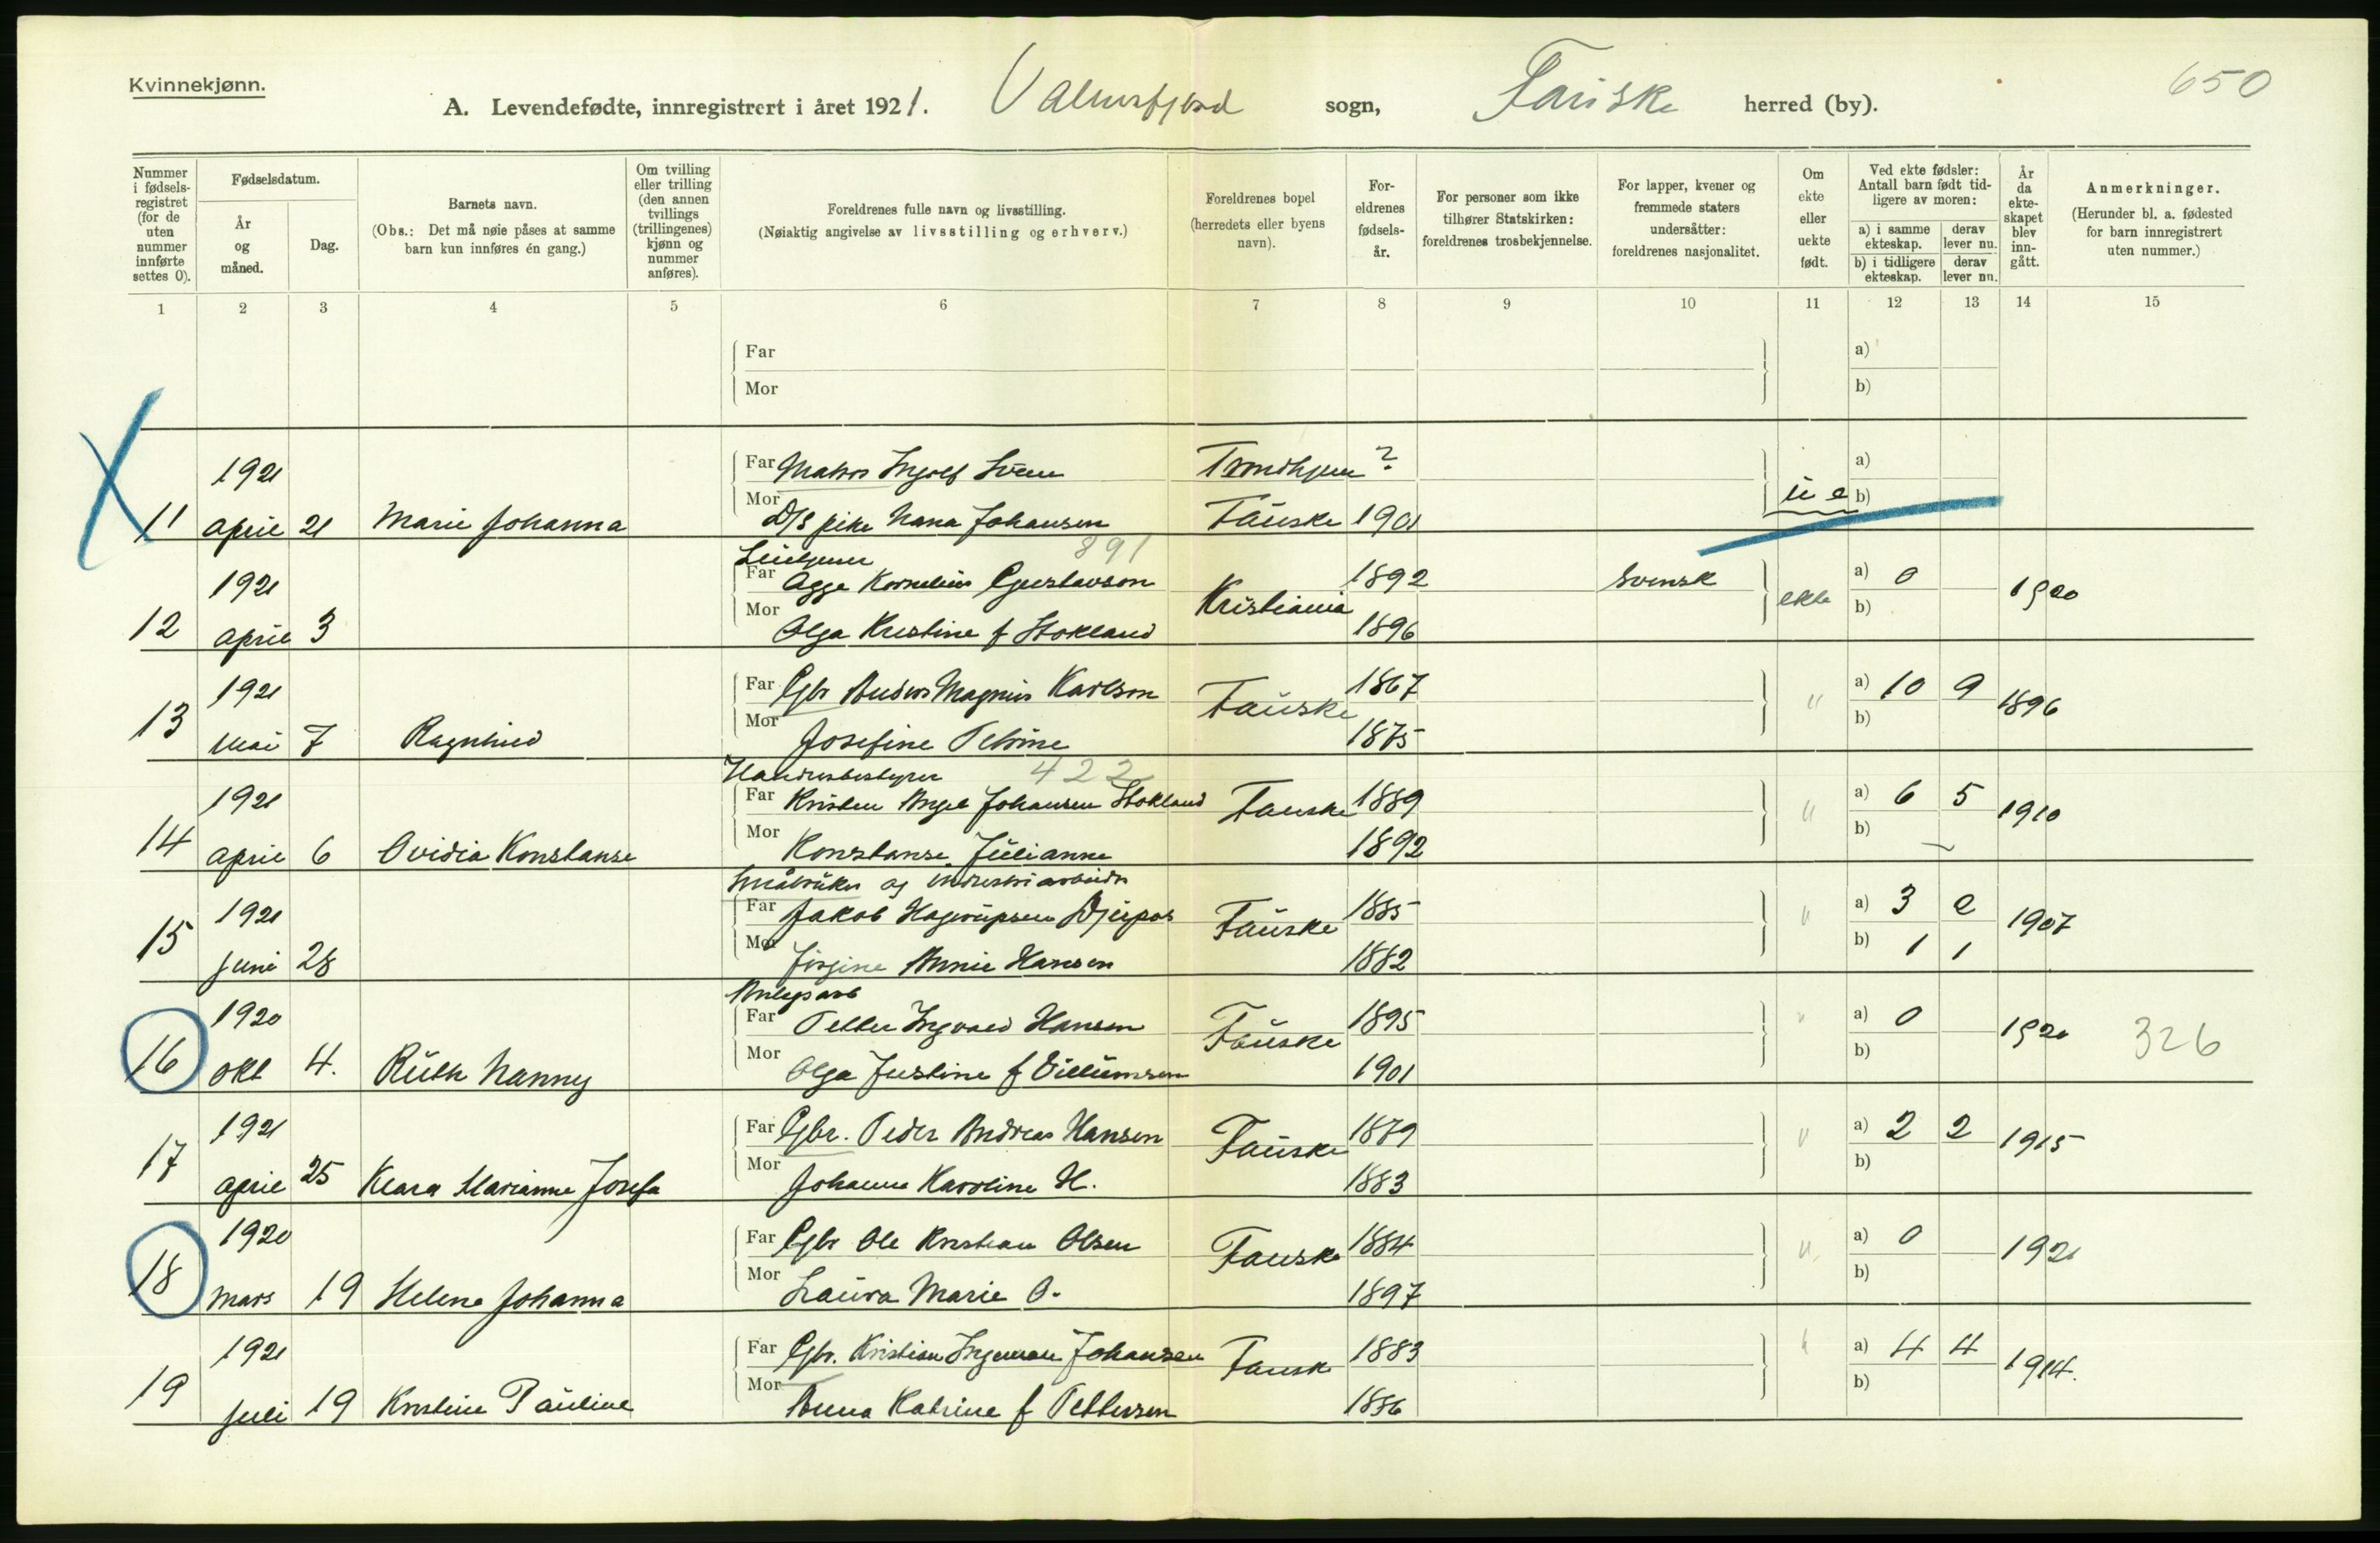 Kvinnekjønn.
650
A. Levendefødte, innregistrert i året 1921. Valnesfjord sogn, Fauske herred (by).
Nummer i fødselsregistret (for de uten nummer innførte settes 0).
Fødselsdatum.
År og måned.
Dag.
Barnets navn.
(Obs.: Det må nøie påses at samme barn kun innføres én gang.)
Om tvilling eller trilling (den annen tvillings (trillingenes) kjønn og nummer anføres).
Foreldrenes fulle navn og livsstilling.
(Nøiaktig angivelse av livsstilling og erhverv.)
Foreldrenes bopel (herredets eller byens navn).
Foreldrenes fødselsår.
For personer som ikke tilhører Statskirken: foreldrenes trosbekjennelse.
For lapper, kvener og fremmede staters undersåtter: foreldrenes nasjonalitet.
Om ekte eller uekte født.
Ved ekte fødsler: Antall barn født tidligere av moren:
a) i samme ekteskap.
derav lever nu.
b) i tidligere ekteskap.
derav lever nu.
År da ekteskapet blev inngått.
Anmerkninger.
(Herunder bl. a. fødested for barn innregistrert uten nummer.)
1 2 3 4 5 6 7 8 9 10 11 12 13 14 15
Far a)
Mor b)
1921 Far Matros Ingolf Trondhjem ? a)
11 april 21 Marie Johanna Mor pike Nana Johansen Fauske 1901 ue b)
891
1921 Far Agge Kornelius Gustavson Kristiania 1892 Svensk ekte a) 0 1920
12 april 3 Mor Olga Kristine f Stokland 1896 b)
1921 Far Gbr Anders Magnus Karlson Fauske 1867 " a) 10 9 1896
13 mai 7 Ragnhild Mor Josefine Petrine 1875 b)
Handelsbestyrer 422
1921 Far Kristen Angel Johansen Stokland Fauske 1889 " a) 6 5 1910
14 april 6 Ovidia Konstanse Mor Konstanse Julianne 1892 b)
Småbruker og industriarbeider
1921 Far Jakob Hagerupsen Fauske 1885 " a) 3 2 1907
15 juni 28 Mor Jørgine Annie Hansen 1882 b) 1 1
Anlegsarb
1920 Far Petter Ingvald Hansen Fauske 1895 " a) 0 1920 326
16 okt 4. Ruth Nanny Mor Olga Justine f Eillumsen 1901 b)
1921 Far Gbr. Peder Andreas Hansen Fauske 1879 " a) 2 2 1915
17 april 25 Klara Marianne Josefa Mor Johanna Karoline H. 1883 b)
1920 Far Gbr Ole Kristian Olsen Fauske 1884 " a) 0 1921
18 mars 19 Helene Johanna Mor Laura Marie O. 1897 b)
1921 Far Gbr. Kristian Ingeman Johansen Fausk 1883 " a) 4 4 1914.
19 juli 19 Kristine Pauline Mor Anna Katrine f Pettersen 1886 b)